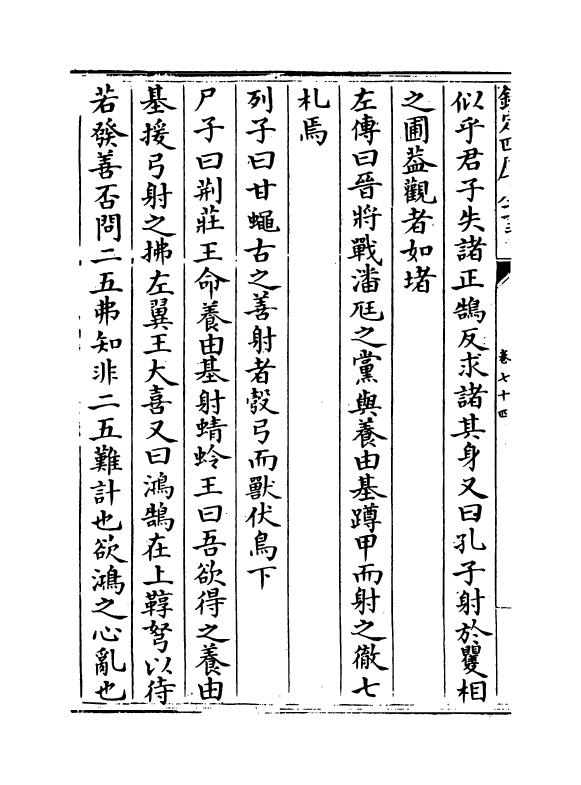 似乎君子失諸正鵠反求諸其身又曰孔子射於矍相
之圃葢觀者如堵
左傳曰晉將戰潘尫之黨與養由基蹲甲而射之徹七
札焉
列子曰甘蠅古之善射者彀弓而獸伏鳥下
尸子曰荆莊王命養由基射蜻蛉王曰吾欲得之養由
基援弓射之拂左翼王大喜又曰鴻鵠在上鞟弩以待
若發善否問二五弗知非二五難計也欲鴻之心亂也
卷七十四